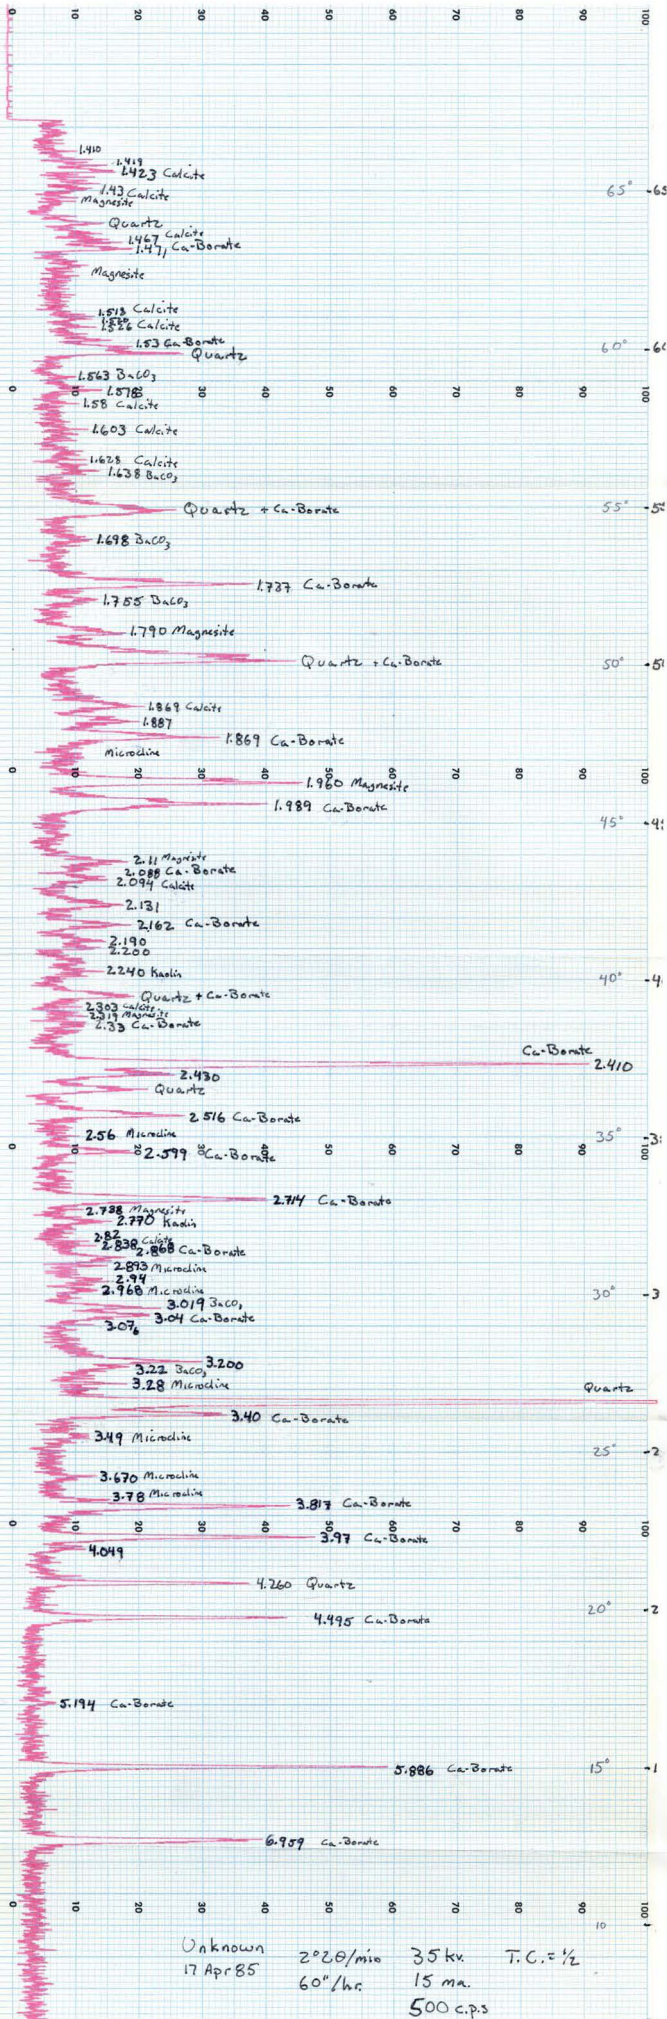 0 10 20 30 40 50 60 70 80 90 100
1.410
1.419
1.423 Calcite
1.43 Calcite
65° -65
Magnesite
Quartz
1.467 Calcite
1.471 Ca-Borate
Magnesite
1.513 Calcite
1.520
1.526 Calcite
1.53 Ca-Borate
60° -60
Quartz
1.563 BaCO3
0 10 20 30 40 50 60 70 80 90 100
1.578
1.58 Calcite
1.603 Calcite
1.628 Calcite
1.638 BaCO3
Quartz + Ca-Borate
55°
1.698 BaCO3
1.737 Ca-Borate
1.755 BaCO3
1.790 Magnesite
Quartz + Ca-Borate
50°
1.869 Calcite
1.887
1.869 Ca-Borate
Microcline
0 10 20 30 40 50 60 70 80 90 100
1.960 Magnesite
1.989 Ca-Borate
45°
2.11 Magnesite
2.088 Ca-Borate
2.094 Calcite
2.131
2.162 Ca-Borate
2.190
2.200
2.240 Kaolin
40°
Quartz + Ca-Borate
2.303 Calcite
2.319 Magnesite
2.33 Ca-Borate
Ca-Borate
2.410
2.430
Quartz
2.516 Ca-Borate
2.56 Microcline
35°
0 10 20 30 40 50 60 70 80 90 100
2.599 Ca-Borate
2.714 Ca-Borate
2.738 Magnesite
2.770 Kaolin
2.82
2.838 Calcite
2.868 Ca-Borate
2.893 Microcline
2.94
2.968 Microcline
30°
3.019 BaCO3
3.04 Ca-Borate
3.076
3.200
3.22 BaCO3
3.28 Microcline
Quartz
3.40 Ca-Borate
3.49 Microcline
25°
3.670 Microcline
3.78 Microcline
3.817 Ca-Borate
0 10 20 30 40 50 60 70 80 90 100
3.97 Ca-Borate
4.049
4.260 Quartz
20°
4.495 Ca-Borate
5.194 Ca-Borate
5.886 Ca-Borate
15°
6.959 Ca-Borate
0 10 20 30 40 50 60 70 80 90 100
10
Unknown 2°2θ/min 35 kv. T.C.= 1/2
17 Apr 85 60"/hr. 15 ma.
500 c.p.s